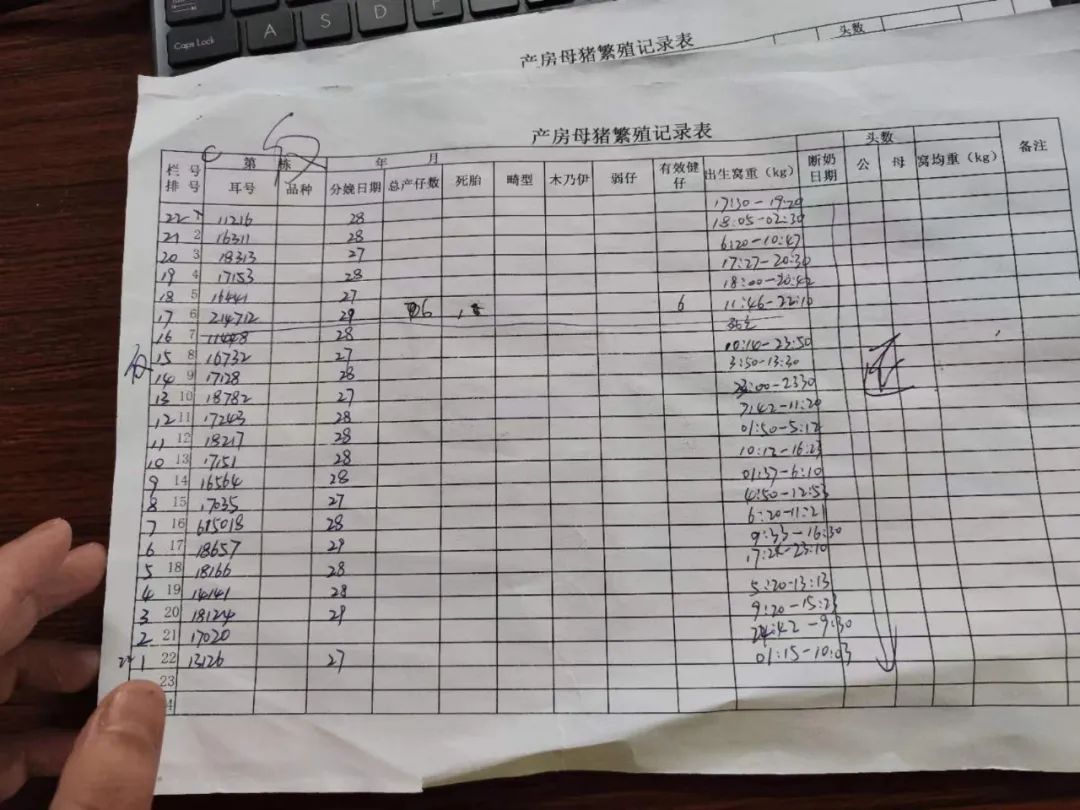 Caps Lock A S D F
产房母猪繁殖记录表 头数
产房母猪繁殖记录表
第 栋 年 月 头数
栏号 排号 耳号 品种 分娩日期 总产仔数 死胎 畸型 木乃伊 弱仔 有效健仔 出生窝重(kg) 断奶日期 公 母 窝均重(kg) 备注
22 1 11216 28 17:30-19:20
21 2 16311 28 18:05-02:30
20 3 18313 27 6:20-10:47
19 4 17153 28 17:27-20:30
18 5 16441 27 18:00-20:42
17 6 214712 29 6 6 11:46-22:10
16 7 11448 28
15 8 16732 27 10:10-23:50
14 9 17128 28 3:50-13:30
13 10 18782 27 23:00-2330
12 11 17243 28 7:42-11:20
11 12 18217 28 01:50-5:12
10 13 17151 28 10:12-16:23
9 14 16564 28 01:37-6:10
8 15 17035 27 4:50-12:53
7 16 615018 28 6:20-11:21
6 17 18657 29 9:33-16:30
5 18 18166 28
4 19 14141 28 5:20-13:13
3 20 18124 29 9:20-15:23
2 21 17020 24:42-9:30
1 22 13126 27 01:15-10:03
23